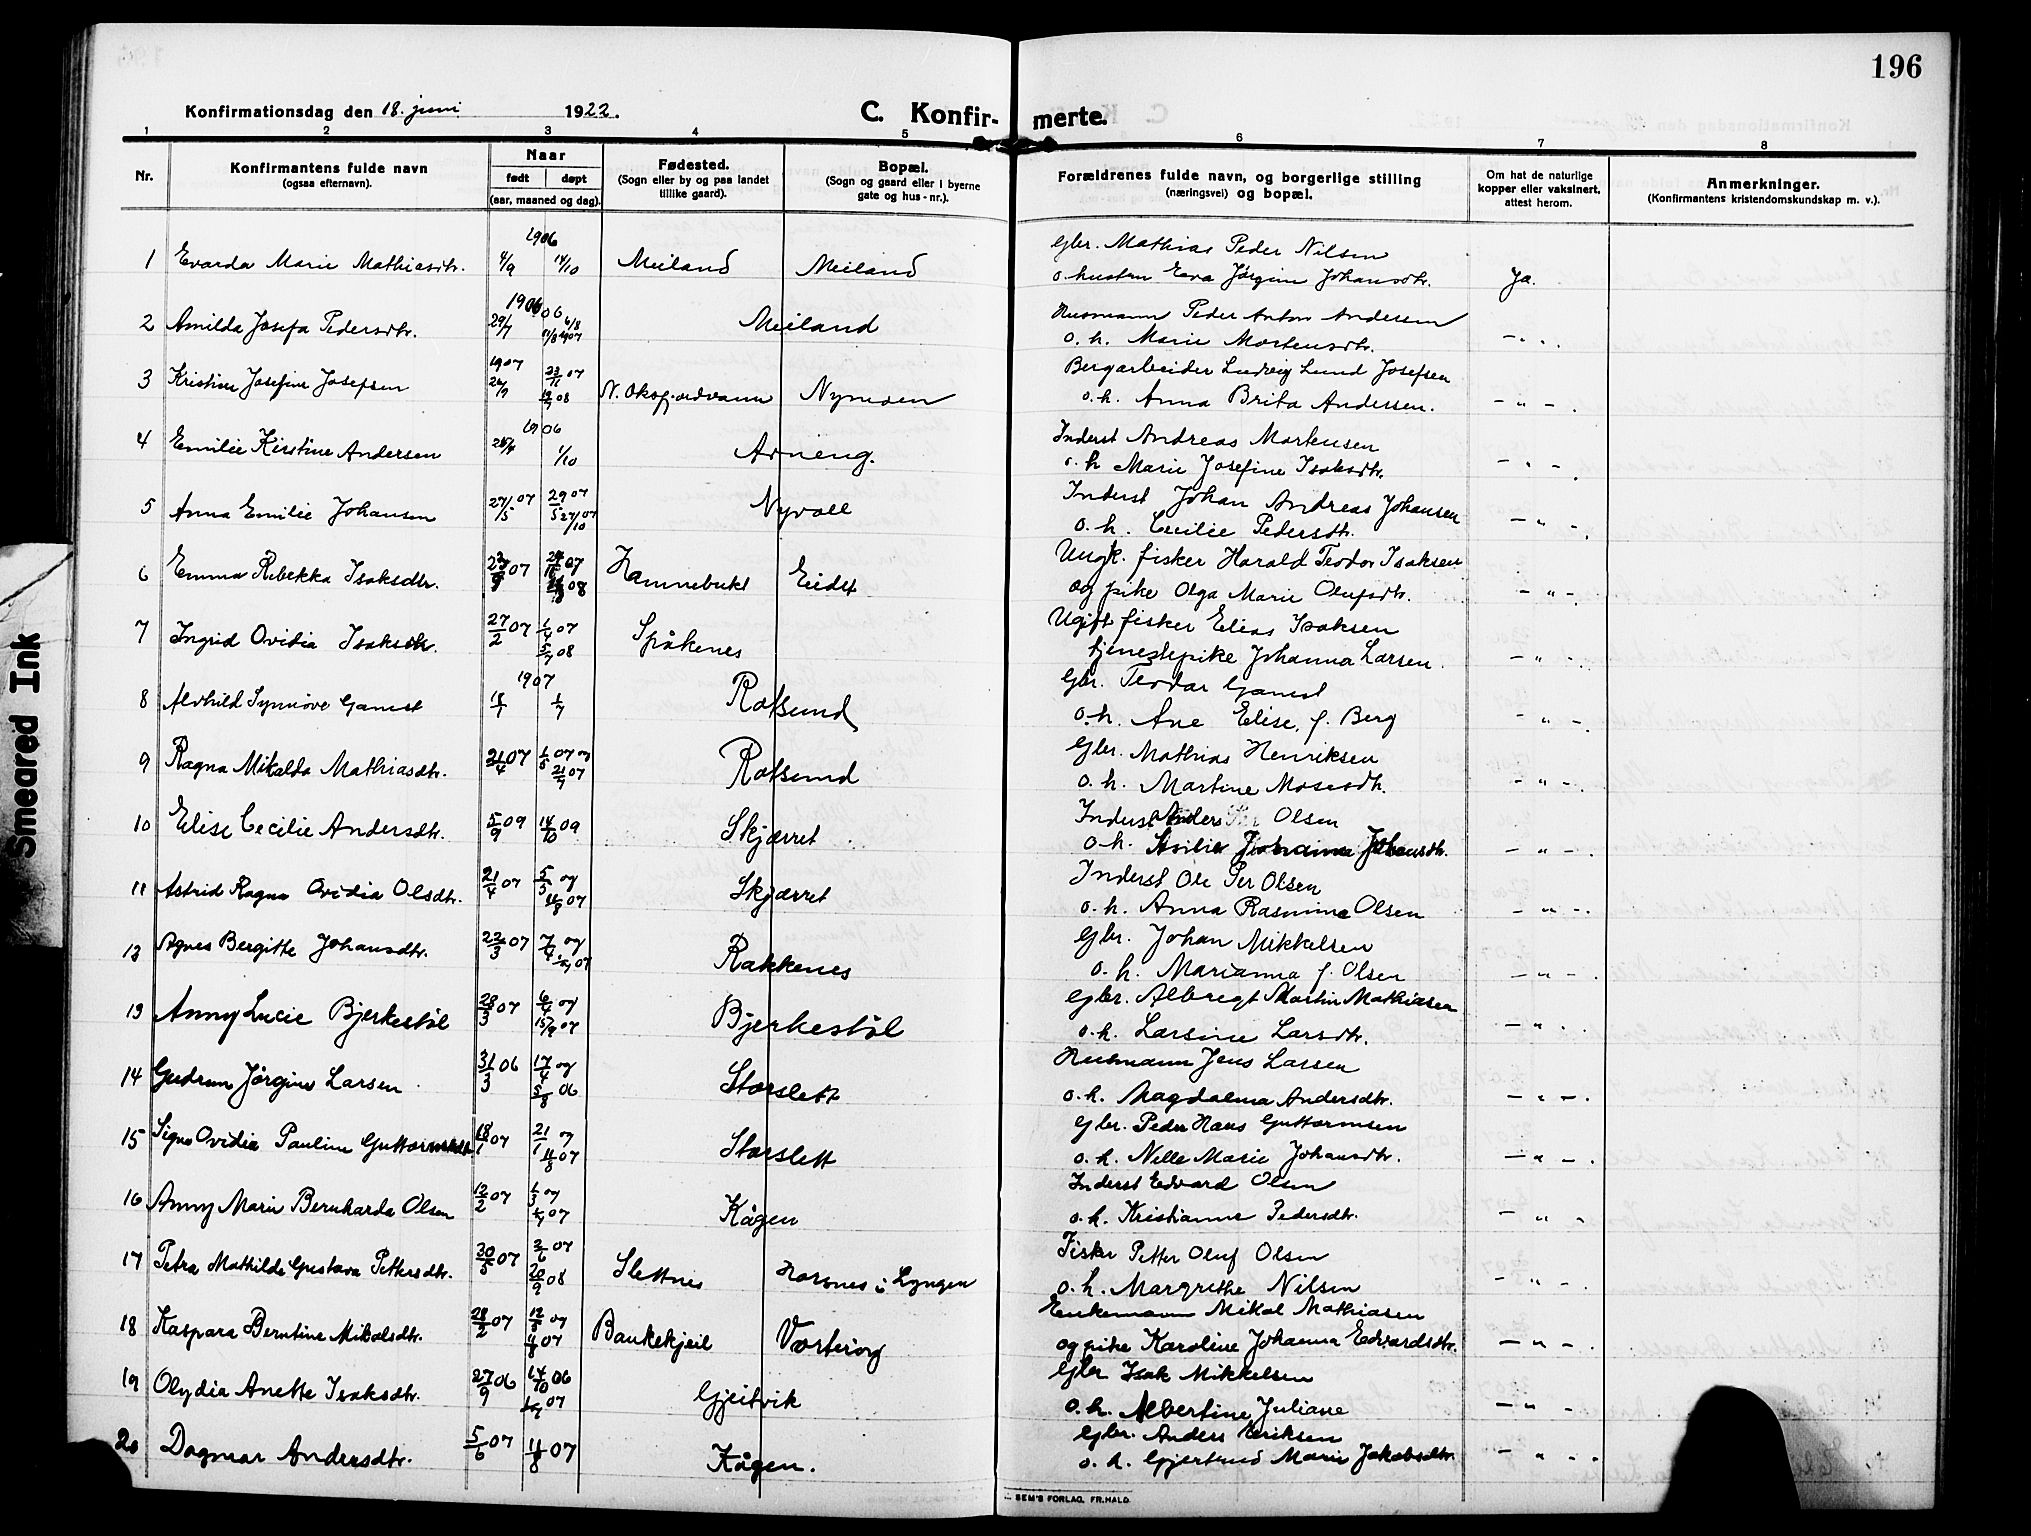 196
Konfirmationsdag den 18. juni 1922.
C. Konfirmerte.
1 2 3 4 5 6 7 8
Nr.
Konfirmantens fulde navn
(ogsaa efternavn).
Naar
født døpt
(aar, maaned og dag).
Fødested.
(Sogn eller by og paa landet
tillike gaard).
Bopæl.
(Sogn og gaard eller i byerne
gate og hus-nr.).
Forældrenes fulde navn, og borgerlige stilling
(næringsvei) og bopæl.
Om hat de naturlige
kopper eller vaksinert,
attest herom.
Anmerkninger.
(Konfirmantens kristendomskundskap m. v.).
1 Evarda Marie Mathiasdtr. 1906 4/9 14/10 Meiland Meiland Gbr. Mathias Peder Nilsen
o. hustru Eva Jørgine Johansdtr. Ja.
2 Amilda Josefa Pedersdtr. 1906 29/7 Meiland Husmann Peder Anton Andersen
o. h. Marie Mortensdtr. - " -
3 Kristine Josefine Josefsen 1907 N. Oksfjordvann Nymoen Bergarbeider Ludvig Lund Josefsen
o. h. Anna Brita Andersen. - " -
4 Emilie Kirstine Andersen 1906 1/10 Arneng. Inderst Andreas Mortensen
o. h Marie Josefine Isaksdtr. - " -
5 Anna Emilie Johansen 27/5 07 29/5 07 27/10 07 Nyvoll Inderst Johan Andreas Johansen
o. h. Cecilie Pedersdtr. - " -
6 Emma Rebekka Isaksdtr. 07 Hamnebukt Eidet Ungk. fisker Harald Teodor Isaksen
og pike Olga Marie Olufsdtr. - " -
7 Ingrid Ovidia Isaksdtr. 27/2 07 1/4 07 5/7 08 Spåkenes Ugift fisker Elias Isaksen
tjenestepike Johanna Larsen. - " -
8 Alvhild Synnøve Gamst 1907 Rotsund Gbr. Teodor Gamst
o. h. Ane Elise, f. Berg - " -
9 Ragna Mikalda Mathiasdtr. 21/4 07 1/5 07 og 21/7 07 Rotsund Gbr. Mathias Henriksen
o. h. Martine Mosesdtr. - " -
10 Elise Cecilie Andersdtr. 5/9 09 14/10 09 Skjærret Inderst Anders Olsen
o. h. Johanna Johansdtr. - " -
11 Astrid Ragna Ovidia Olsdtr. 21/4 07 5/5 og 07 Skjærret Inderst Ole Per Olsen
o. h. Anna Rasmine Olsen - " -
12 Agnes Bergitte Johansdtr. 22/3 07 7/4 og 07 Rakkenes Gbr. Johan Mikkelsen
o. h. Marianna f. Olsen - " -
13 Anny Lucie Bjerkestøl 28/3 07 6/4 og 15/9 07 Bjerkestøl Gbr. Albregt Martin Mathiasen
o. h. Larsine Larsdtr. - " -
14 Gudrun Jørgine Larsen 31/3 06 17/4 og 5/8 06 Storslett Husmann Jens Larsen
o. h. Magdalena Andersdtr. - " -
15 Signe Ovidia Pauline Guttormsdtr. 18/1 07 21/1 og 4/8 07 Storslett Gbr. Peder Hans Guttormsen
o. h. Nelle Marie Johansdtr. - " -
16 Anny Marie Bernharda Olsen 12/2 07 1/3 og 07 Kågen Inderst Edvard Olsen
o. h. Kristianne Pedersdtr. - " -
17 Petra Mathilde Gustava Pettersdtr. 30/5 07 2/6 07 20/9 08 Slettnes Horsnes i Lyngen Fisker Petter Oluf Olsen
o. h. Margrethe Nilsen - " -
18 Kaspara Berntine Mikalsdtr. 28/2 07 12/5 og 4/8 07 Baukekjeil Vorterøy Enkemann Mikal Mathiasen
og pike Karoline Johanna Edvardsdtr. - " -
19 Olydia Anette Isaksdtr. 27/9 06 14/10 06 07 Gjeitvik Gbr Isak Mikkelsen
o. h. Albertine Juliane - " -
20 Dagmar Andersdtr. 5/6 07 4/8 07 Kågen. Gbr. Anders Eriksen
o. h. Gjertrud Marie Jakobsdtr. - " -
SEM'S FORLAG, FR.HALD.
Smeared Ink